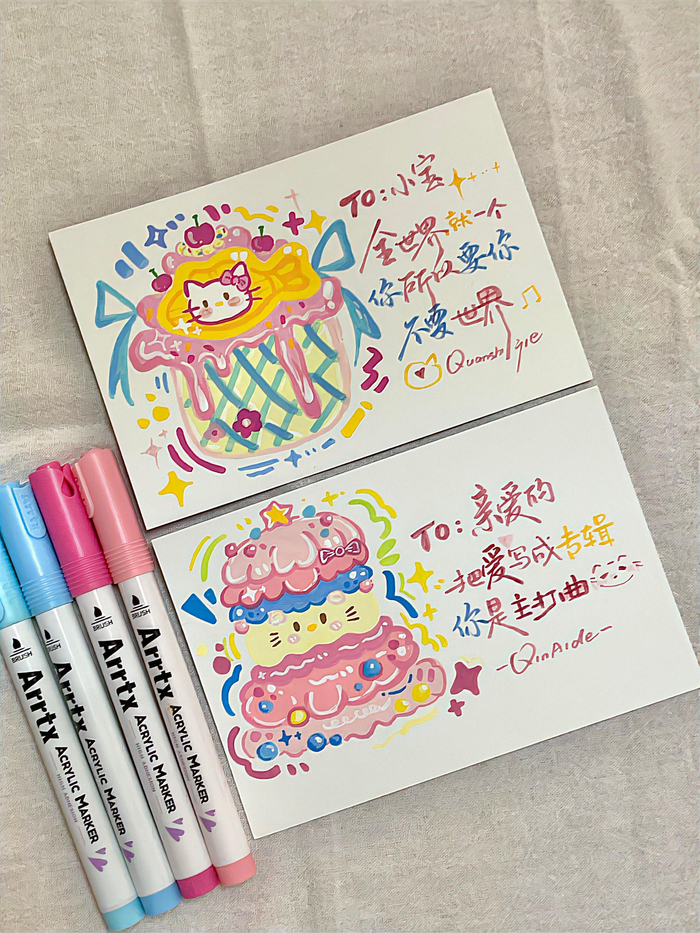 TO:小宝
全世界就一个
你所以要你
不要世界
Quanshijie
TO:亲爱的
把爱写成专辑
你是主打曲
-QinAide-
BRUSH
Arrtx
ACRYLIC MARKER
HIGH ADHESION
BRUSH
Arrtx
ACRYLIC MARKER
BRUSH
Arrtx
ACRYLIC MARKER
HIGH ADHESION
BRUSH
Arrtx
ACRYLIC MARKER